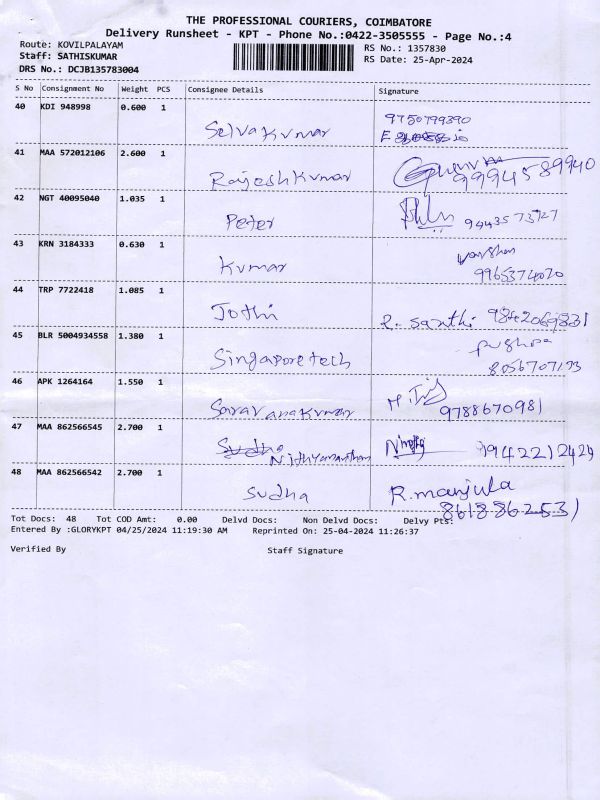 THE PROFESSIONAL COURIERS, COIMBATORE
Delivery Runsheet - KPT - Phone No.:0422-3505555 - Page No.:4
Route: KOVILPALAYAM
Staff: SATHISKUMAR
DRS No.: DCJB135783004
RS No.: 1357830
RS Date: 25-Apr-2024
S No Consignment No Weight PCS Consignee Details Signature
40 KDI 948998 0.600 1
Selvakumar 9750799390
41 MAA 572012106 2.600 1
Rajeshkumar 9994589940
42 NGT 40095040 1.035 1
Peter 9443573727
43 KRN 3184333 0.630 1
Kumar 9965374020
44 TRP 7722418 1.085 1
Jothi R. Santhi 9842069831
45 BLR 5004934558 1.380 1
Singaporetech pushpa
8056707133
46 APK 1264164 1.550 1
Saravanakumar 9788670981
47 MAA 862566545 2.700 1
Sudha
Nithyananthan 9942212424
48 MAA 862566542 2.700 1
Sudha R. manjula
8618862531
Tot Docs: 48 Tot COD Amt: 0.00 Delvd Docs: Non Delvd Docs: Delvy Pts:
Entered By :GLORYKPT 04/25/2024 11:19:30 AM Reprinted On: 25-04-2024 11:26:37
Verified By Staff Signature